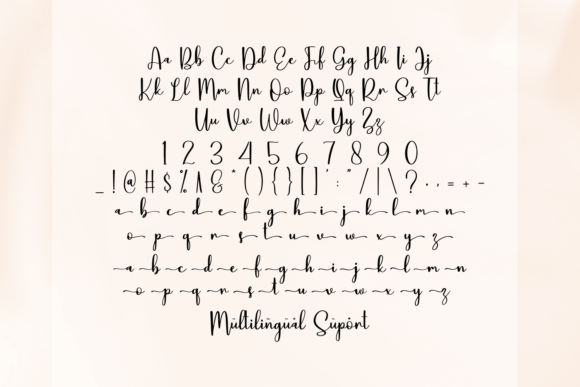 Aa Bb Cc Dd Ee Ff Gg Hh Ii Jj
Kk Ll Mm Nn Oo Pp Qq Rr Ss Tt
Uu Vv Ww Xx Yy Zz
1 2 3 4 5 6 7 8 9 0
_ ! @ # $ % ^ & * ( ) { } [ ] ' : " / | \ ? . , = + -
a b c d e f g h i j k l m n
o p q r s t u v w x y z
a b c d e f g h i j k l m n
o p q r s t u v w x y z
Multilingual Suport